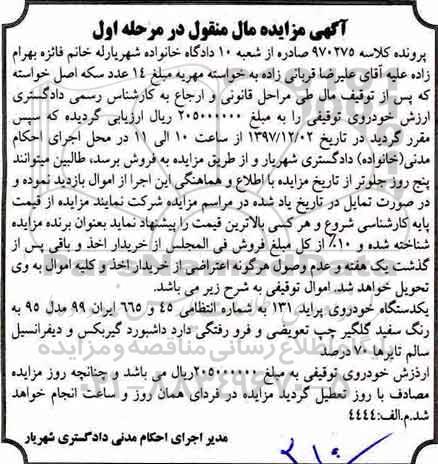 آگهی مزایده مال منقول در مرحله اول
پرونده کلاسه ۹۷۰۲۷۵ صادره از شعبه ۱۰ دادگاه خانواده شهریارله خانم فائزه بهرام
زاده علیه آقای علیرضا قربانی زاده به خواسته مهریه مبلغ ۱۴ عدد سکه اصل خواسته
که پس از توقیف مال طی مراحل قانونی و ارجاع به کارشناس رسمی دادگستری
ارزش خودروی توقیفی را به مبلغ ۲۰۵۰۰۰۰۰۰ ریال ارزیابی گردیده که سپس
مقرر گردید در تاریخ ۱۳۹۷/۱۲/۰۲ از ساعت ۱۰ الی ۱۱ در محل اجرای احکام
مدنی(خانواده) دادگستری شهریار و از طریق مزایده به فروش برسد، طالبین میتوانند
پنج روز جلوتر از تاریخ مزایده با اطلاع و هماهنگی این اجرا از اموال بازدید نموده و
در صورت تمایل در تاریخ یاد شده در مراسم مزایده شرکت نمایند مزایده از قیمت
پایه کارشناسی شروع و هر کسی بالاترین قیمت را پیشنهاد نماید بعنوان برنده مزایده
شناخته شده و ۱۰٪ از کل مبلغ فروش فی المجلس از خریدار اخذ و باقی پس از
گذشت یک هفته و عدم وصول هرگونه اعتراضی از خریدار اخذ و کلیه اموال به وی
تحویل خواهد شد. اموال توقیفی به شرح زیر می باشد.
یکدستگاه خودروی پراید ۱۳۱ به شماره انتظامی ۴۵ و ۶۶۵ ایران ۹۹ مدل ۹۵ به
رنگ سفید گلگیر چپ تعویضی و فرو رفتگی دارد داشبورد گیربکس و دیفرانسیل
سالم تایرها ۷۰ درصد
ارذزش خودروی توقیفی به مبلغ ۲۰۵۰۰۰۰۰۰ریال می باشد و چنانچه روز مزایده
مصادف با روز تعطیل گردید مزایده در فردای همان روز و ساعت انجام خواهد
شد.م.الف:۴۴۴۴
مدیر اجرای احکام مدنی دادگستری شهریار